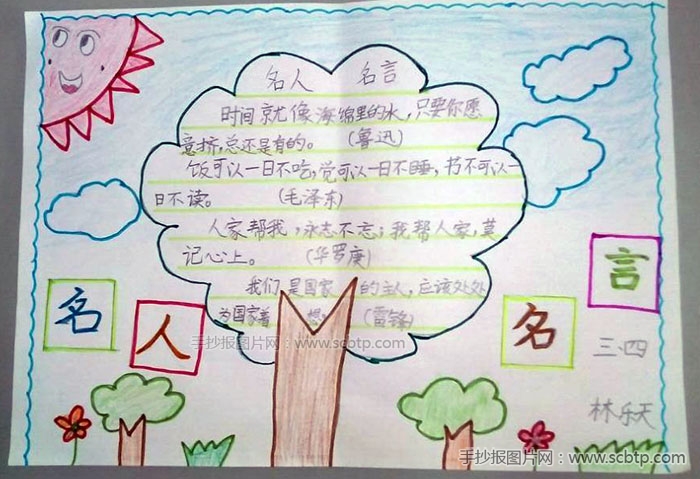 名人 名言
时间就像海绵里的水,只要你愿
意挤,总还是有的。 (鲁迅)
饭可以一日不吃,觉可以一日不睡,书不可以一
日不读。 (毛泽东)
人家帮我,永志不忘;我帮人家,莫
记心上。 (华罗庚)
我们是国家的主人,应该处处
为国家着想。 (雷锋)
名人名言
三.四
林乐天
手抄报图片网:www.scbtp.com
手抄报图片网:www.scbtp.com